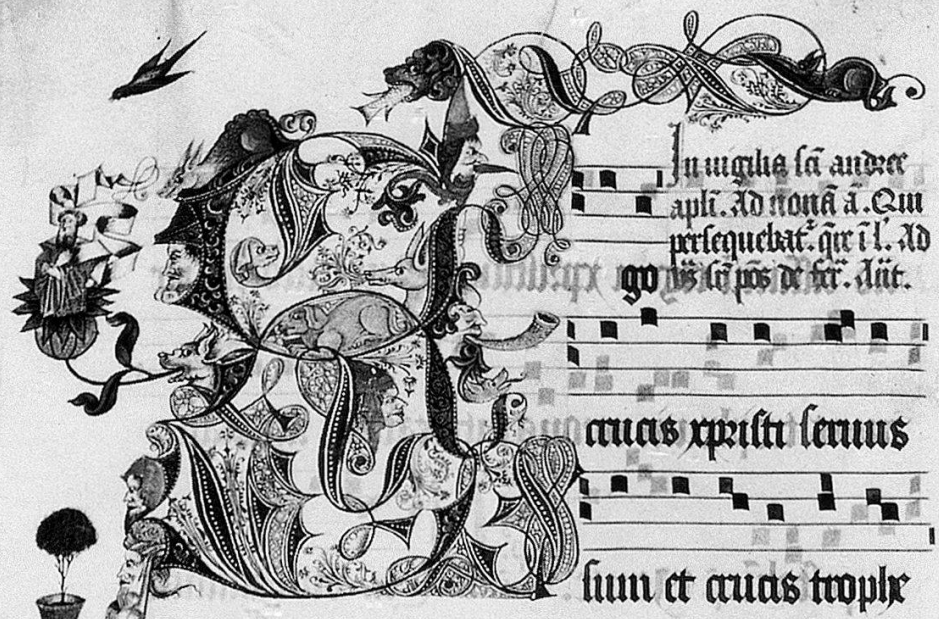 In uigilia sci andree
apli. Ad nonã ã. Qui
persequebat. q̃re ĩ l. Ad
go uṽs sc̃ põs de fer. Añt.
crucis xpristi seruus
sum et crucis trophe